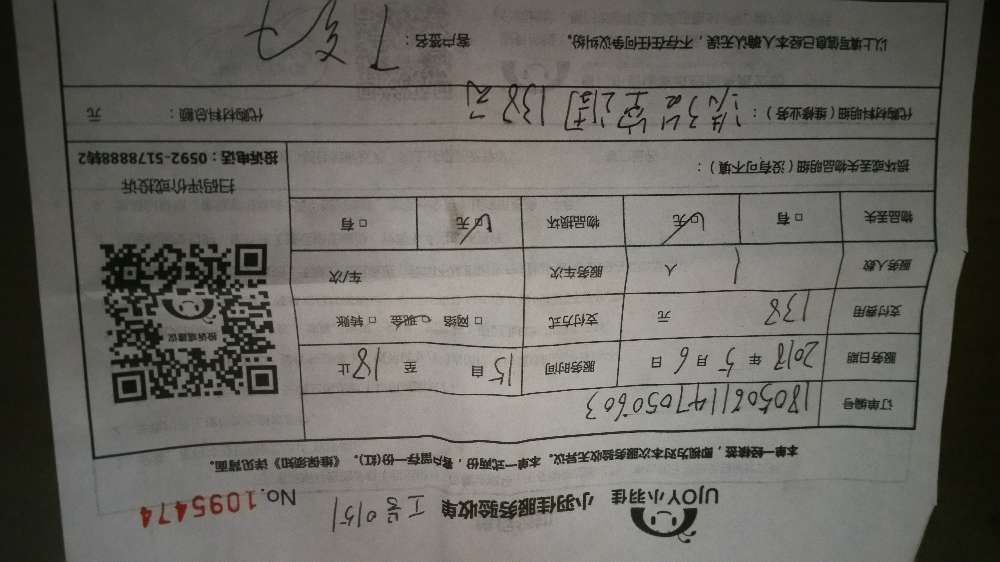 UJOY小羽佳 小羽佳服务验收单 No.1095474
本单一经核签，即视为对本次服务验收无异议。本单一式两份，客户留存一份(红)。《维保须知》详见背面。
订单编号 1805061147050603
服务日期 2018 年 5 月 6 日 服务时间 15 自 至 18 止
支付费用 138 元 支付方式 □ 网络 □ 现金 □ 转账
服务人数 1 人 服务车次 车/次
物品丢失 □ 有 □ 无 物品损坏 □ 无 □ 有
损坏或丢失物品明细（没有可不填）：
投诉建议
扫码评价或投诉
投诉电话：0592-5178888转2
代购材料明细（维修业务）： 138元 代购材料总额： 元
以上填写信息已经本人确认无误，不存在任何争议纠纷。 客户签名：